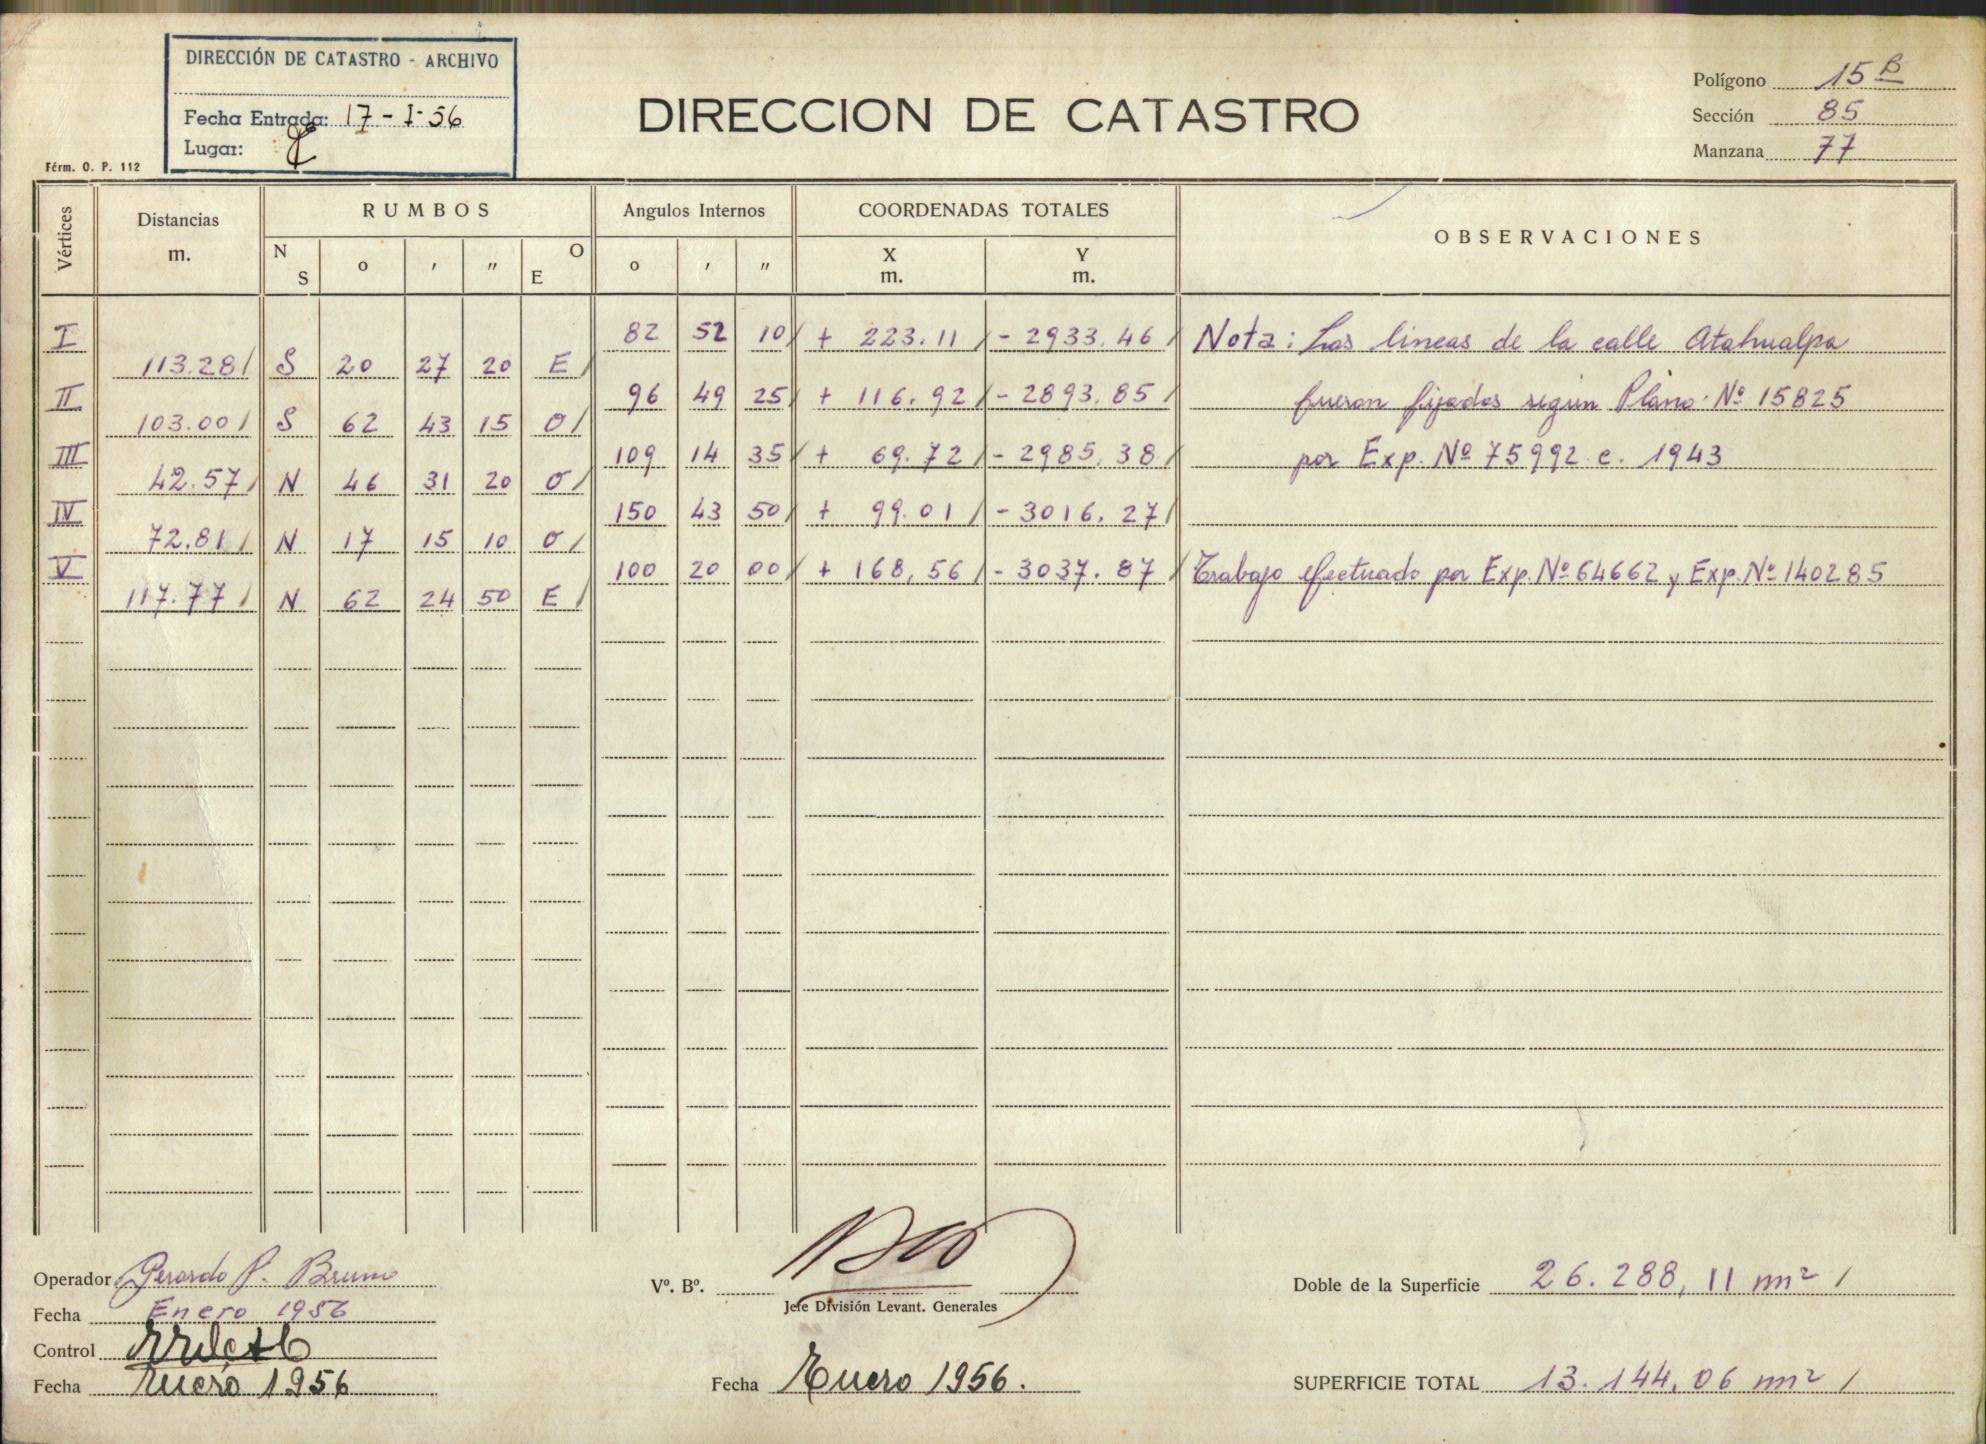 DIRECCIÓN DE CATASTRO - ARCHIVO
Fecha Entrada: 17-I-56
Lugar:
Férm. O. P. 112
DIRECCION DE CATASTRO
Polígono 15 B
Sección 85
Manzana 77
Vértices Distancias m. RUMBOS N S o ' " O E Angulos Internos o ' " COORDENADAS TOTALES X m. Y m. OBSERVACIONES
I 82 52 10 / + 223.11 / - 2933.46 / Nota: Las lineas de la calle Atahualpa
113.28 / S 20 27 20 E /
II 96 49 25 / + 116.92 / - 2893.85 / fueron fijadas según Plano Nº 15825
103.00 / S 62 43 15 O /
III 109 14 35 / + 69.72 / - 2985,38 / por Exp. Nº 75992 c. 1943
42.57 / N 46 31 20 O /
IV 150 43 50 / + 99.01 / - 3016.27 /
72.81 / N 17 15 10 O /
V 100 20 00 / + 168,56 / - 3037.87 / Trabajo efectuado por Exp. Nº 64662 y Exp. Nº 140285
117.77 / N 62 24 50 E /
Operador Gerardo P. Bruno
Fecha Enero 1956
Control
Fecha Enero 1956
Vº. Bº.
Jefe División Levant. Generales
Fecha Enero 1956.
Doble de la Superficie 26.288,11 m² /
SUPERFICIE TOTAL 13.144,06 m² /